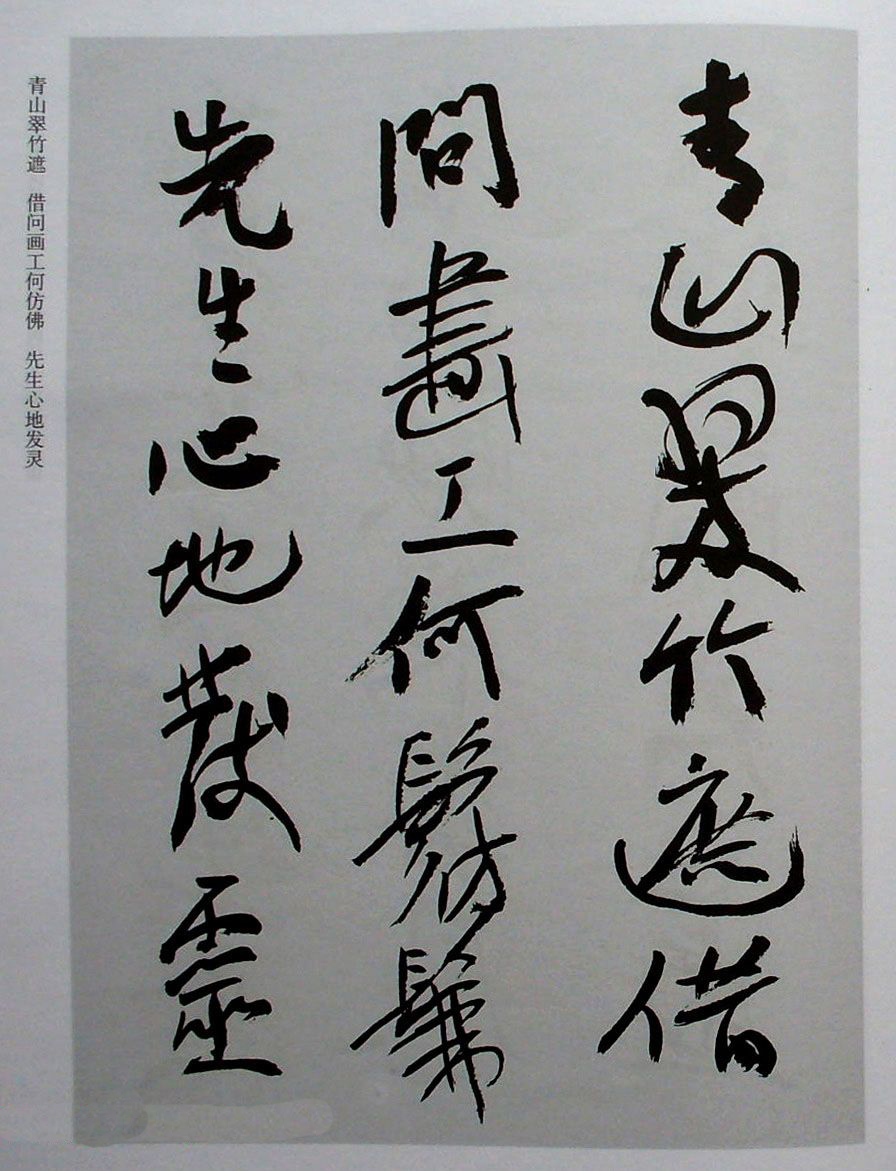 青山翠竹遮借
問畫工何髣髴
先生心地發靈
青山翠竹遮　借问画工何仿佛　先生心地发灵